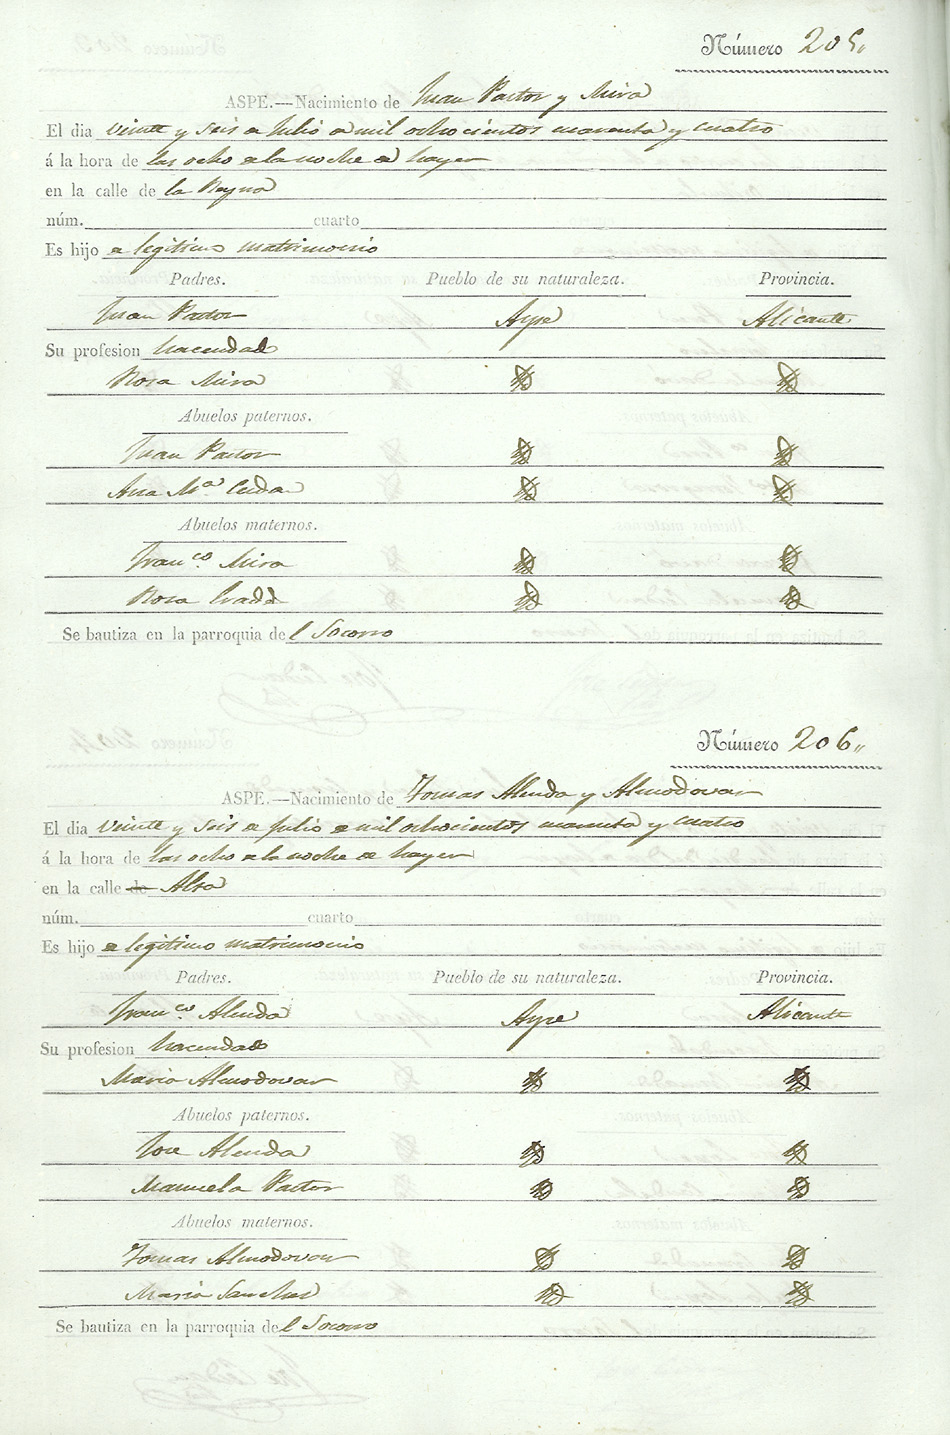 Número 205,,
ASPE.—Nacimiento de Juan Pastor y Mira
El dia veinte y seis de Julio de mil ochocientos cuarenta y cuatro
á la hora de las ocho de la noche de hayer
en la calle de la Reyna
núm. cuarto
Es hijo de legitimo matrimonio
Padres. Pueblo de su naturaleza. Provincia.
Juan Pastor Aspe Alicante
Su profesion hacendado
Rosa Mira
Abuelos paternos.
Juan Pastor
Ana Mª
Abuelos maternos.
Franco. Mira
Rosa
Se bautiza en la parroquia del Socorro
Número 206,,
ASPE.—Nacimiento de Tomas Alenda y Almodovar
El dia veinte y seis de Julio de mil ochocientos cuarenta y cuatro
á la hora de las ocho de la noche de hayer
en la calle de Alta
núm. cuarto
Es hijo de legitimo matrimonio
Padres. Pueblo de su naturaleza. Provincia.
Franco. Alenda Aspe Alicante
Su profesion hacendado
Maria Almodovar
Abuelos paternos.
Jose Alenda
Manuela Pastor
Abuelos maternos.
Tomas Almodovar
Maria Sanchez
Se bautiza en la parroquia del Socorro